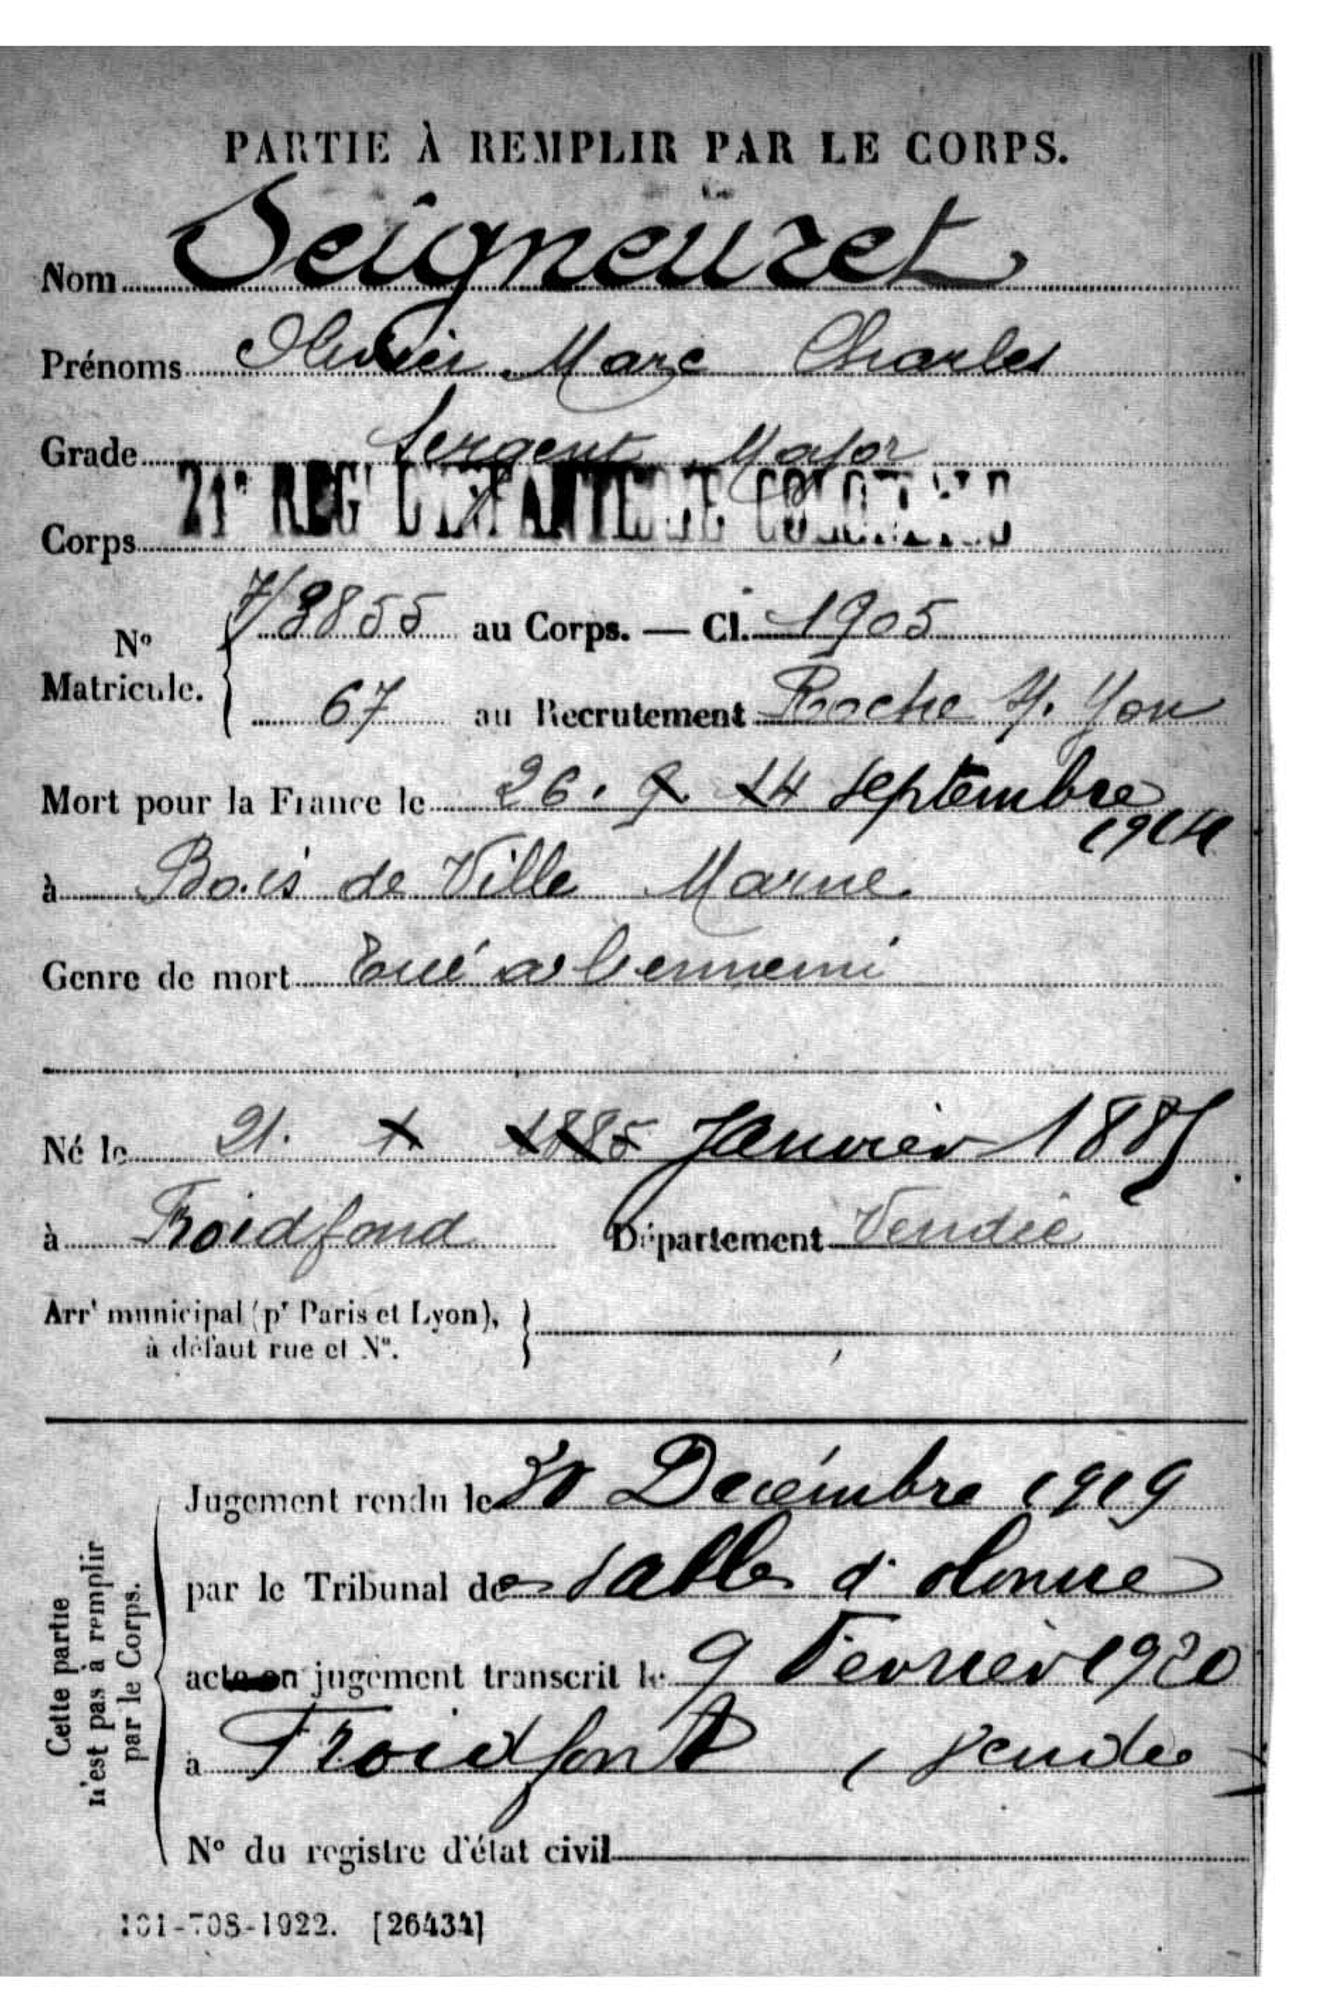 PARTIE À REMPLIR PAR LE CORPS.
Nom Seigneuret
Prénoms Olivier Marc Charles
Grade Sergent Major
Corps 21e REGt D'INFANTERIE COLONIALE
No Matricule. 7/3855 au Corps. — Cl. 1905
67 au Recrutement Roche s. Yon
Mort pour la France le 26. 9. 14 septembre
1914
à Bois de Ville Marne
Genre de mort Tué à l'ennemi
Né le 21. 1 1885 Janvier 1885
à Froidfond Département Vendée
Arrt municipal (pr Paris et Lyon),
à défaut rue et No.
Cette partie
n'est pas à remplir
par le Corps.
Jugement rendu le 30 Decémbre 1919
par le Tribunal de Sables d'olonne
acte ou jugement transcrit le 9 Fevrier 1920
à Froidfond, Vendée
No du registre d'état civil
101-708-1922. [26434]